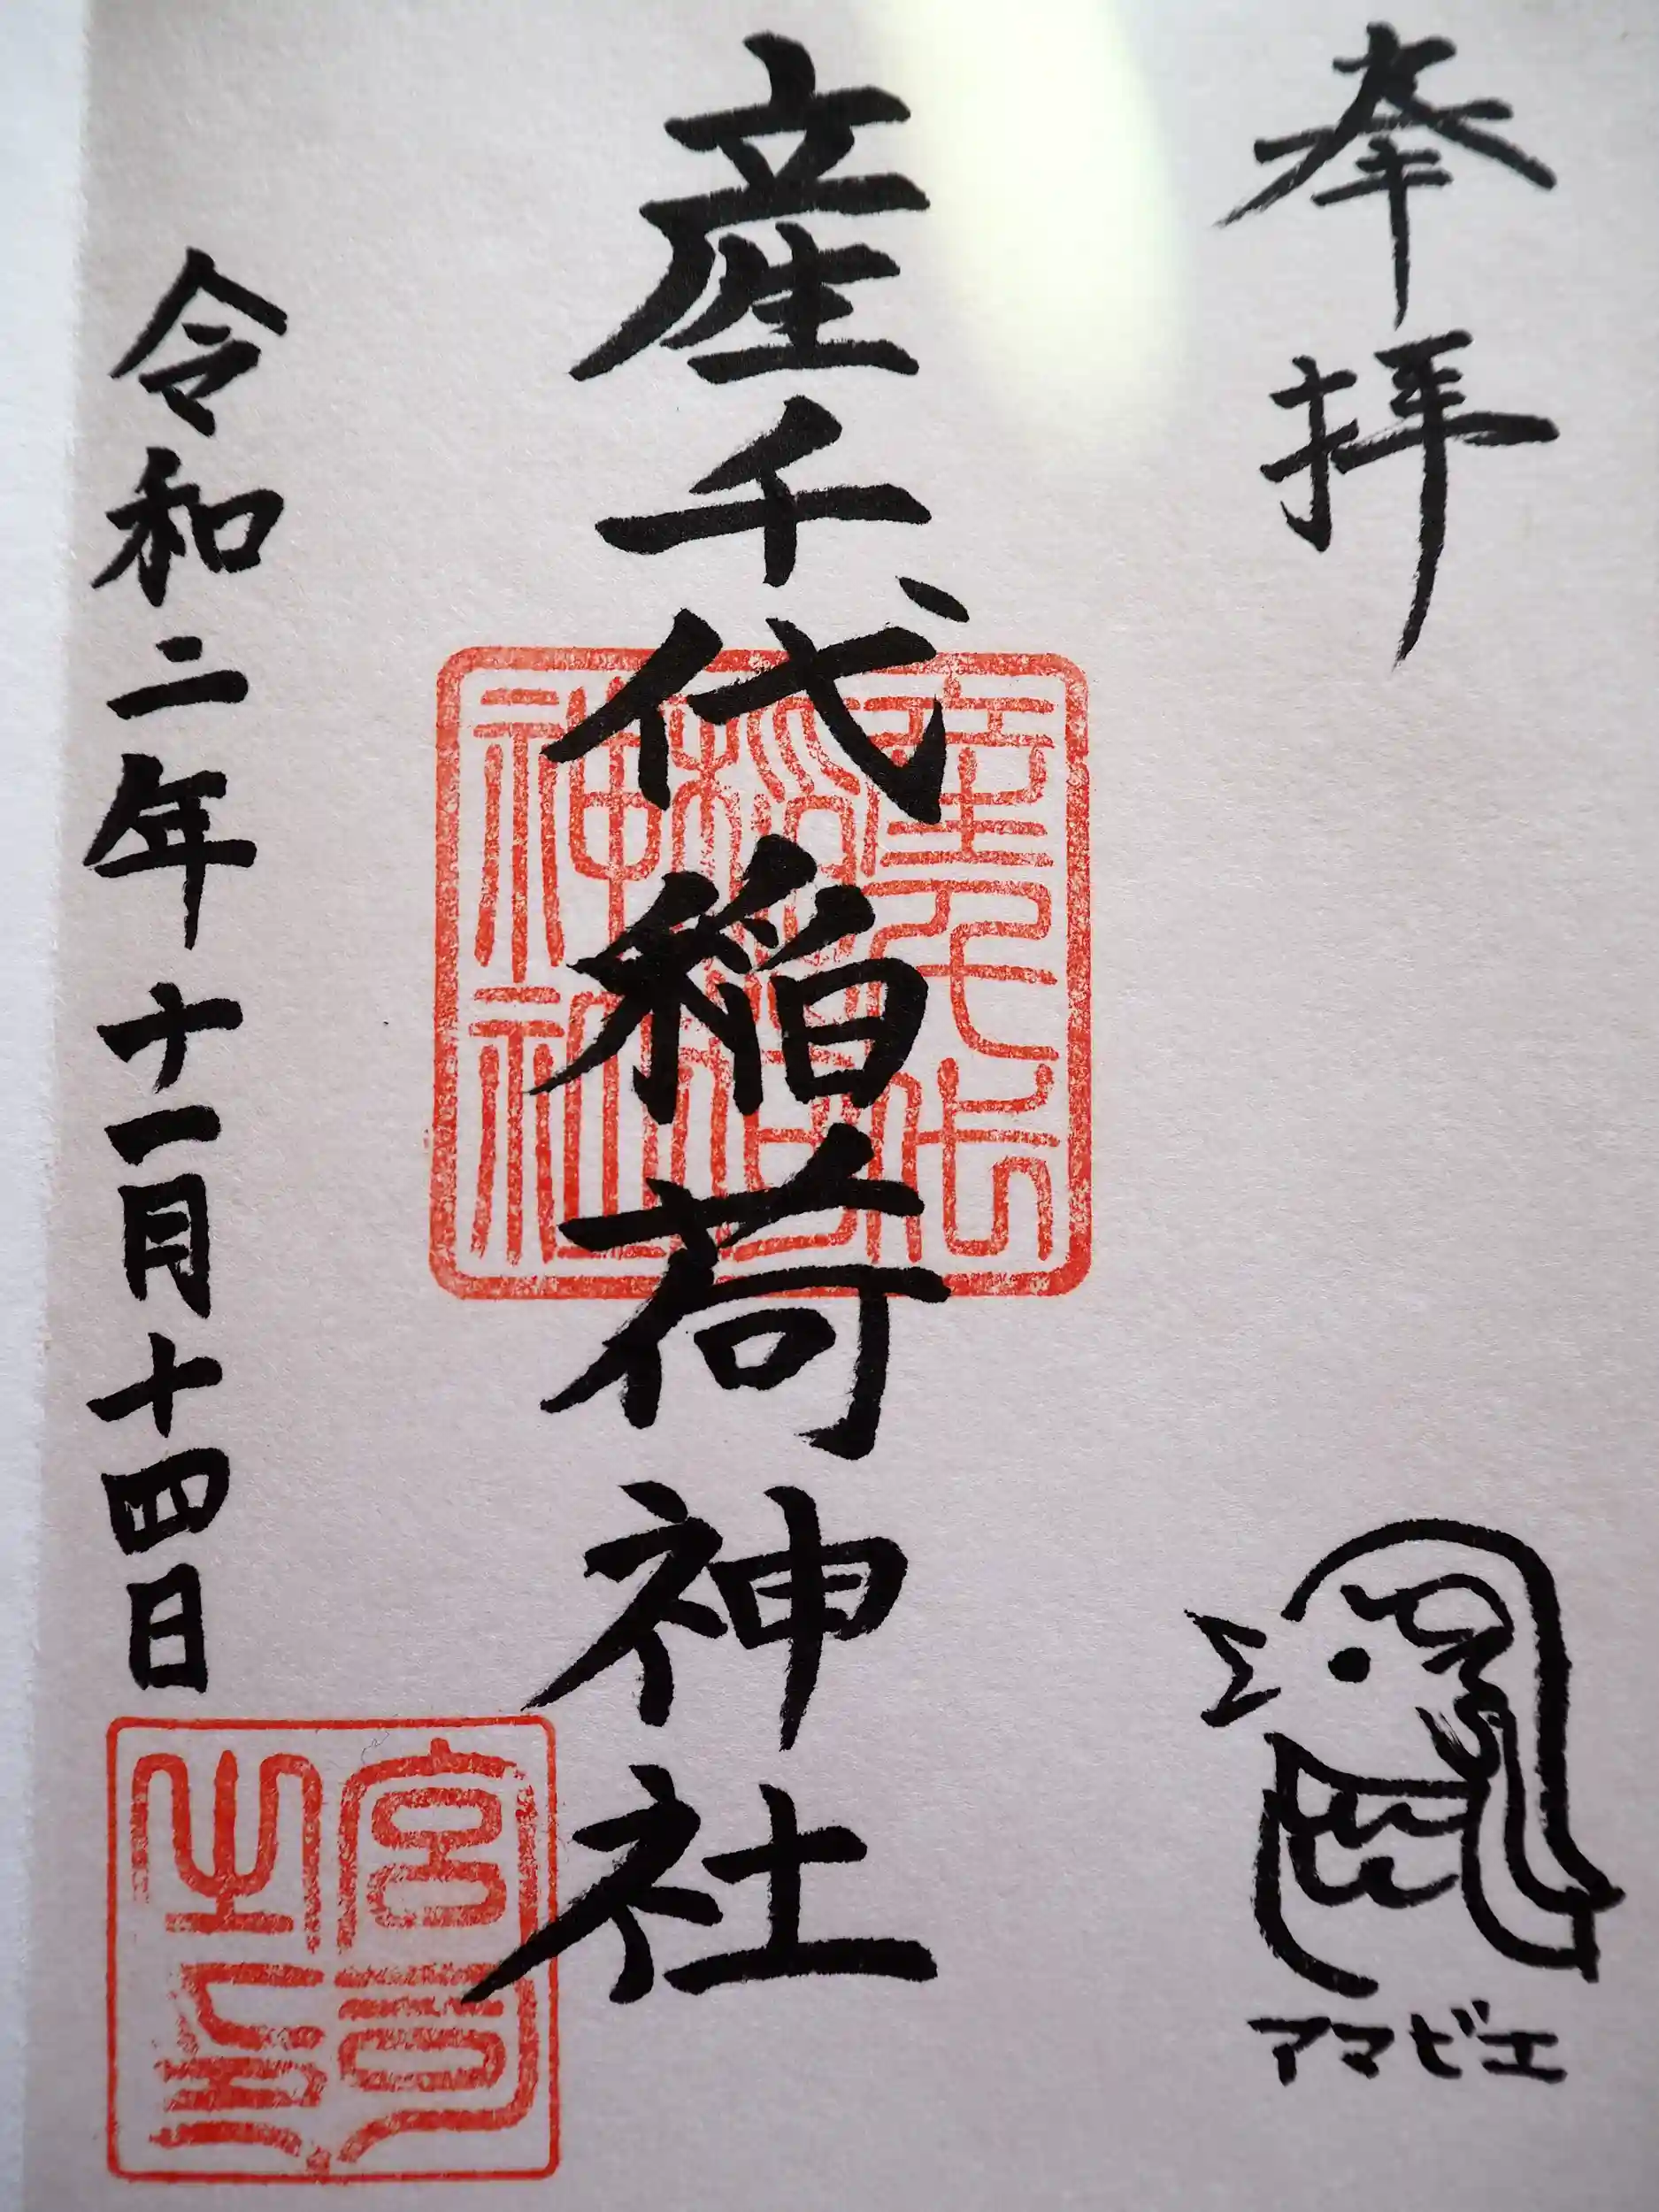 奉拝
アマビエ
産千代稲荷神社
産千代
稲荷
神社
令和二年十一月十四日
宮司
之印